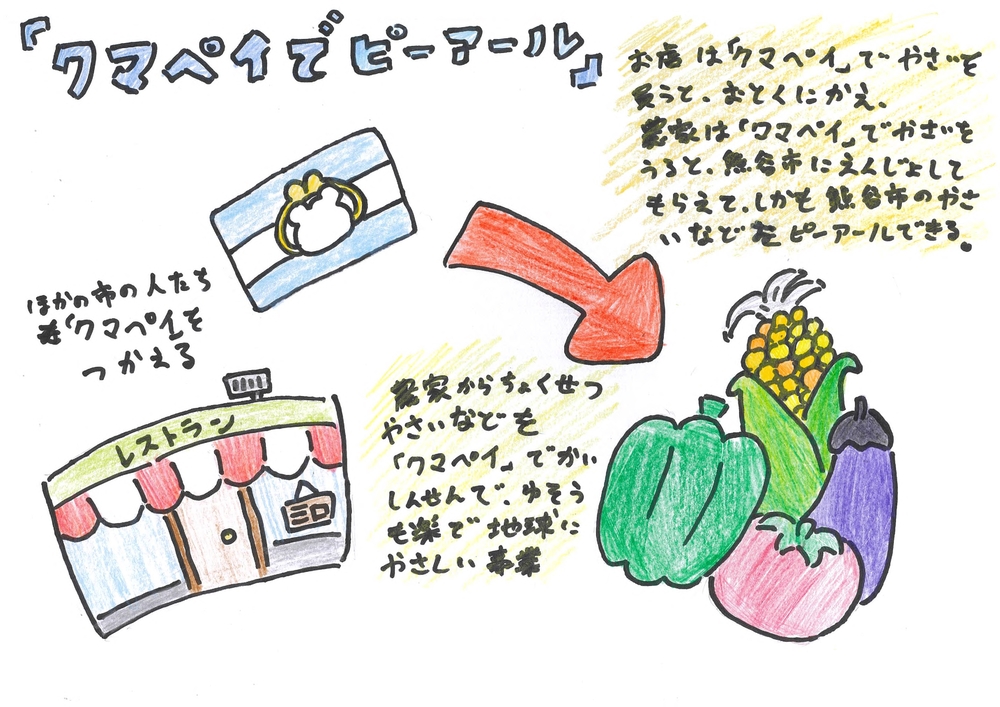 『クマペイでピーアール』
お店は「クマペイ」でやさいを
買うと、おとくにかえ、
農家は「クマペイ」でやさいを
うると、熊谷市にえんじょして
もらえて、しかも熊谷市のやさ
いなどをピーアールできる。
ほかの市の人たち
も「クマペイ」を
つかえる
レストラン
農家からちょくせつ
やさいなどを
「クマペイ」でかい
しんせんで、ゆそう
も楽で地球に
やさしい事業